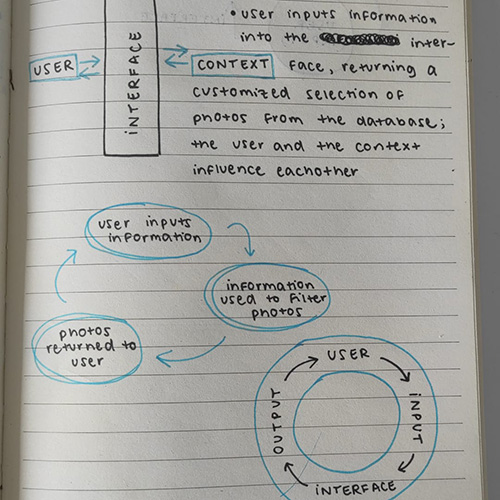 • user inputs information
into the inter-
USER
INTERFACE
CONTEXT
face, returning a
customized selection of
photos from the database;
the user and the context
influence eachother
user inputs
information
information
used to filter
photos
photos
returned to
user
USER
INPUT
INTERFACE
OUTPUT